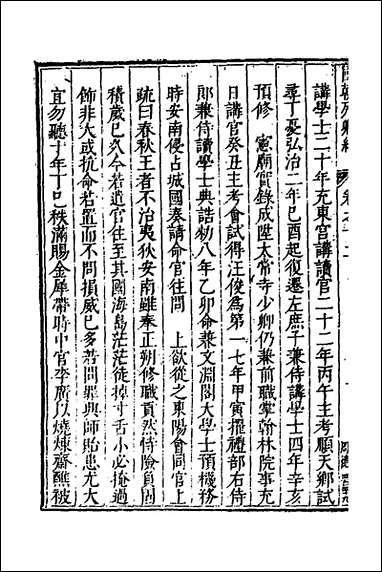 講學士二十年充東宮講讀官二十二年丙午主考順天鄉試
尋丁憂弘治二年己酉起復遷左庶子兼侍講學士四年辛亥
預修　憲廟實錄成陞太常寺少卿仍兼前職掌翰林院事充
日講官癸丑主考會試得汪俊為第一七年甲寅擢禮部右侍
郎兼侍讀學士典誥勑八年乙卯命兼文淵閣大學士預機務
時安南侵占城國奏請命官往問　上欲從之東陽會同官上
疏曰春秋王者不治夷狄安南雖奉正朔修職貢然恃險負固
積歲已久今若遣官往至其國海島茫茫徒掉寸舌小必掩過
飾非大或抗命若置而不問損威已多若問罪興師貽患尤大
宜勿聽十年丁巳秩滿賜金犀帶時中官李廣以燒煉齋醮被